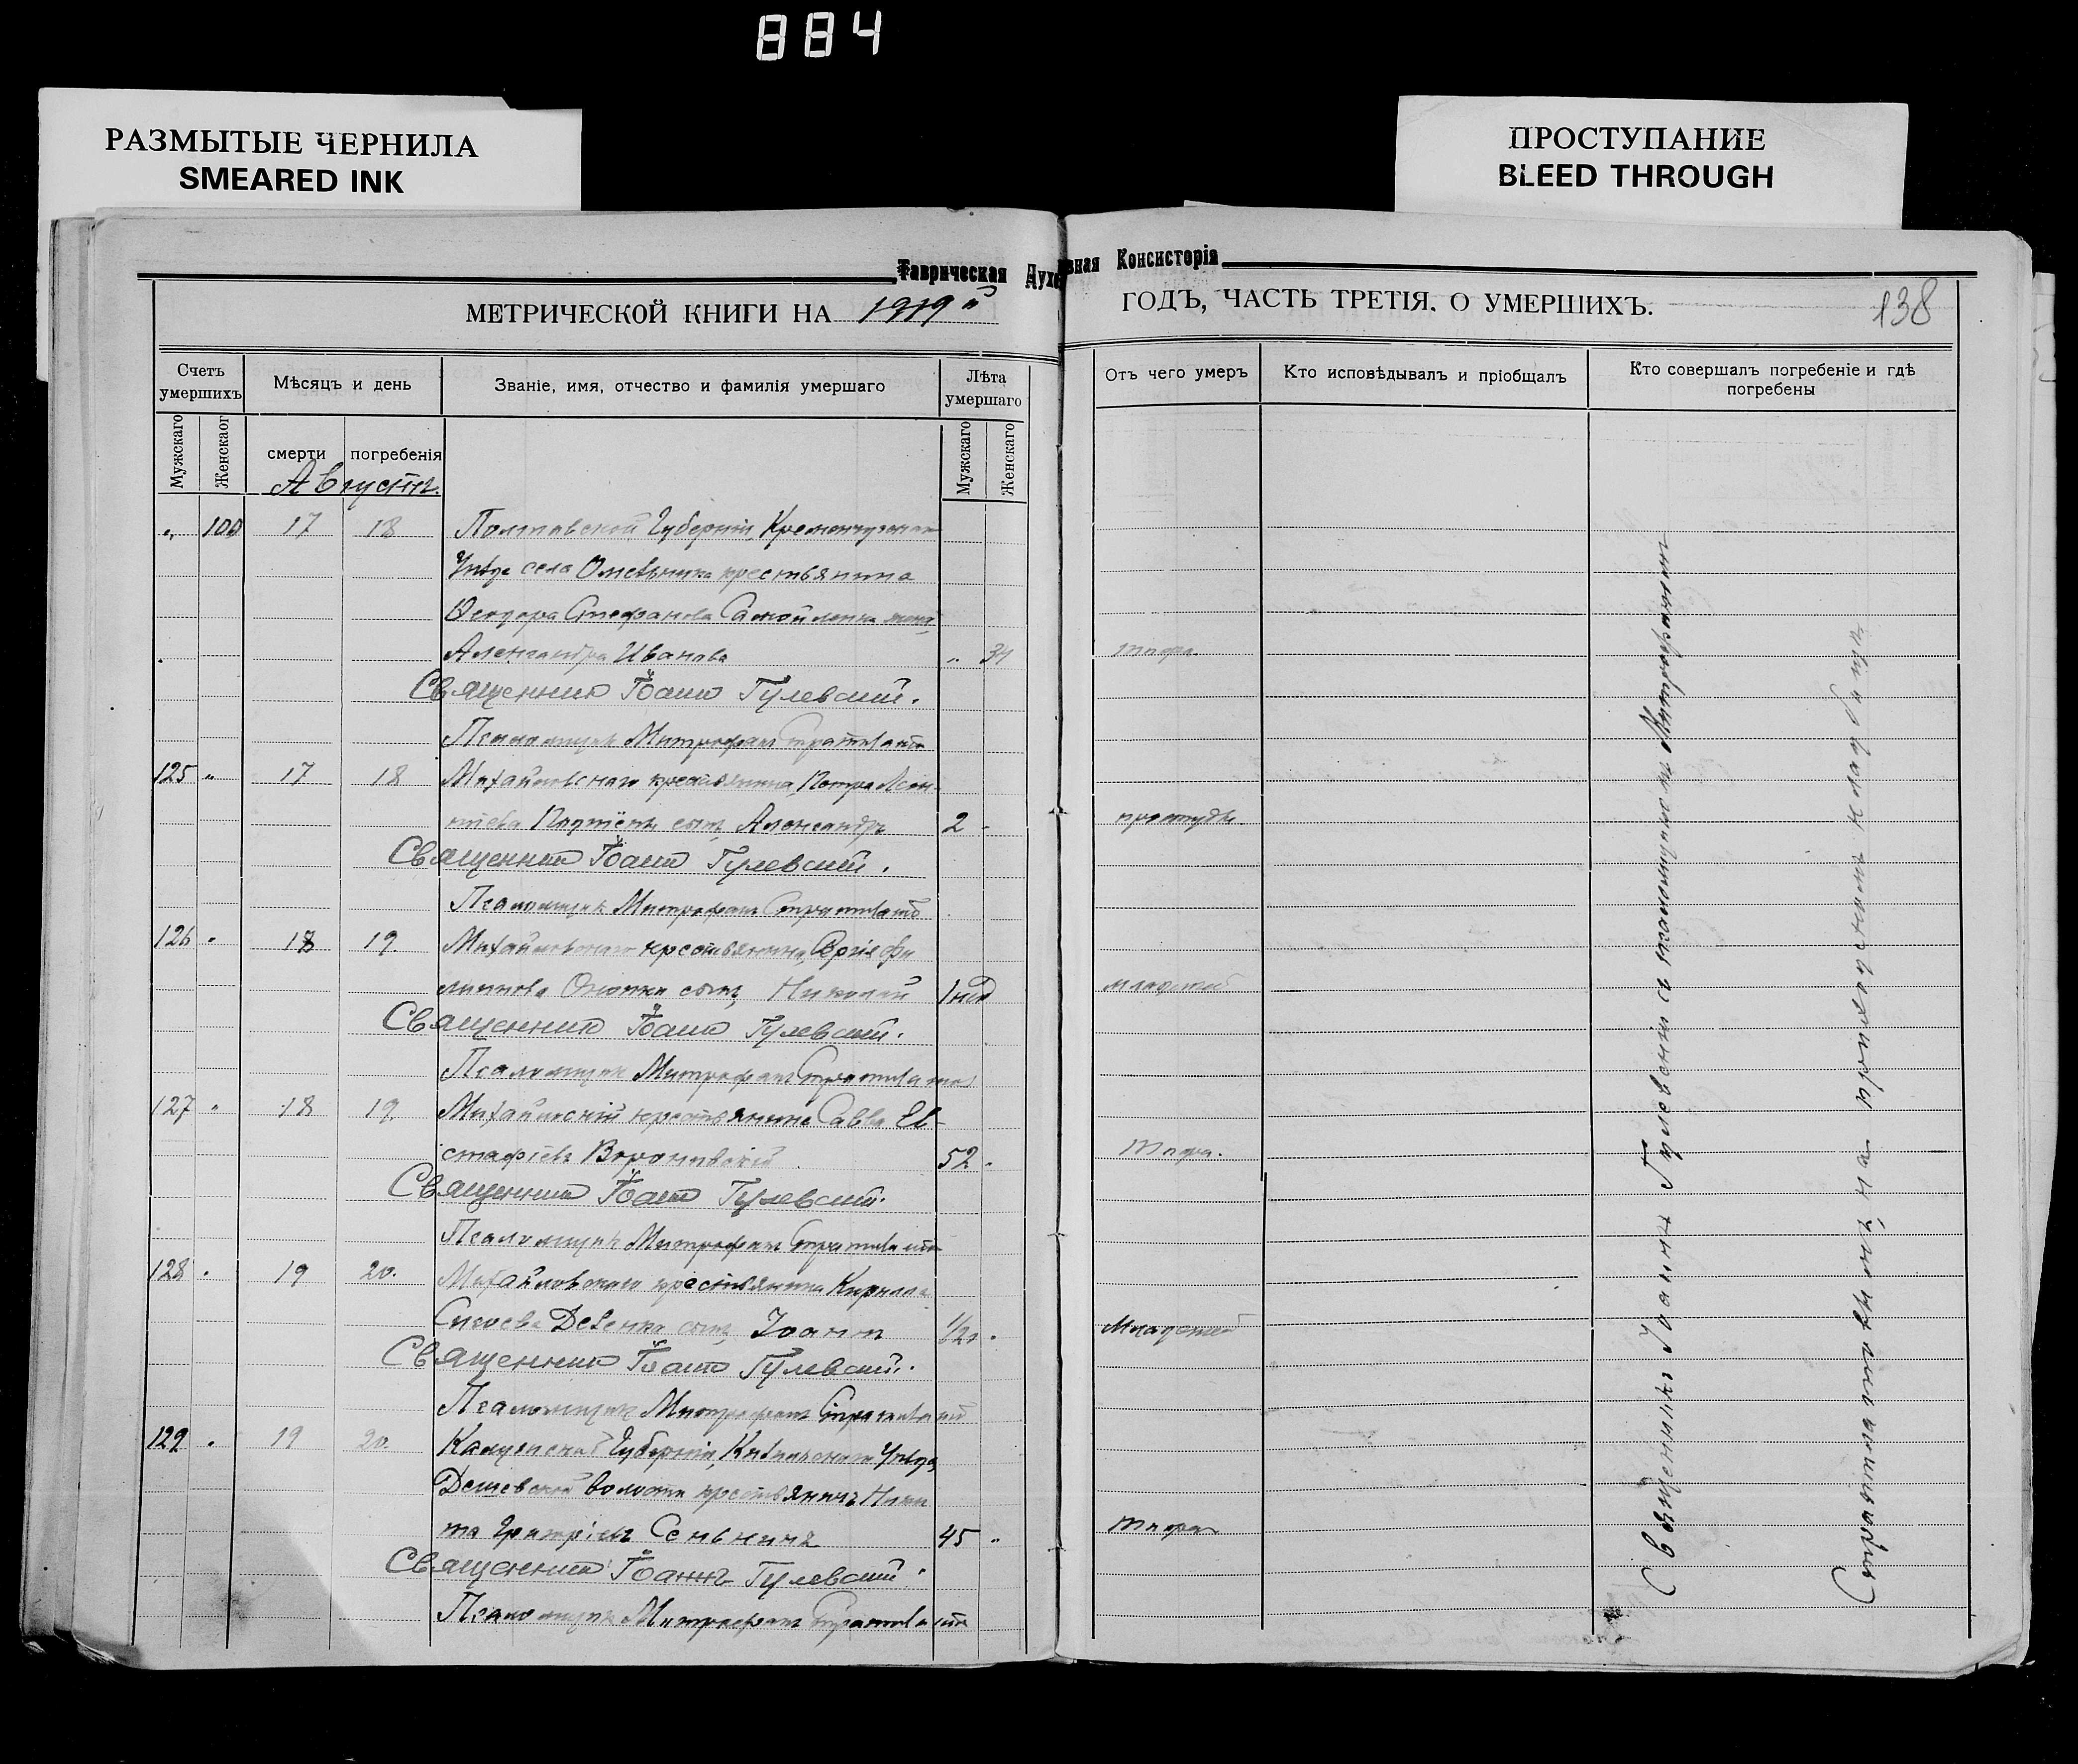 884
РАЗМЫТЫЕ ЧЕРНИЛА
SMEARED INK
ПРОСТУПАНИЕ
BLEED THROUGH
Таврическая Духовная Консисторія
МЕТРИЧЕСКОЙ КНИГИ НА 1919
ГОДЪ, ЧАСТЬ ТРЕТІЯ. О УМЕРШИХЪ.
138
Счетъ умершихъ
Мѣсяцъ и день
Званіе, имя, отчество и фамилія умершаго
Лѣта умершаго
Отъ чего умеръ
Кто исповѣдывалъ и пріобщалъ
Кто совершалъ погребеніе и гдѣ погребены
Мужскаго
Женскаог
смерти
погребенія
Мужскаго
Женскаго
Августъ.
„ 100 17 18 Полтавской Губерніи, Кременчугскаго
Уѣзда села Омельника крестьянина
Ѳеодора Стефанова Самойленка жена
Александра Иванова „ 34 тифа.
Священникъ Іоаннъ Гулевскій.
Псаломщикъ Митрофанъ
125 „ 17 18 Михайловскаго крестьянина Петра Леон-
тіева сынъ Александръ 2 - простуды.
Священникъ Іоаннъ Гулевскій.
Псаломщикъ Митрофанъ
126 „ 18 19. Михайловскаго крестьянина Сергія Фи
липпова сынъ Николай 1 нед младенч.
Священникъ Іоаннъ Гулевскій.
Псаломщикъ Митрофанъ
127 „ 18 19. Михайловскій крестьянинъ Савва Ев-
стафіевъ 52 . Тифа.
Священникъ Іоаннъ Гулевскій.
Псаломщикъ Митрофанъ
128 . 19 20. Михайловскаго крестьянина Кирилла
сынъ Іоаннъ 1/2 .
Священникъ Іоаннъ Гулевскій.
Псаломщикъ Митрофанъ
129 . 19 20. Губерніи, Уѣзда,
волости крестьянинъ Ники
та Григоріевъ Сенькинъ 45 „ тифа
Священникъ Іоаннъ Гулевскій.
Псаломщикъ Митрофанъ
Священникъ Іоаннъ Гулевскій съ псаломщикомъ Митрофаномъ
на приходскомъ кладбищѣ